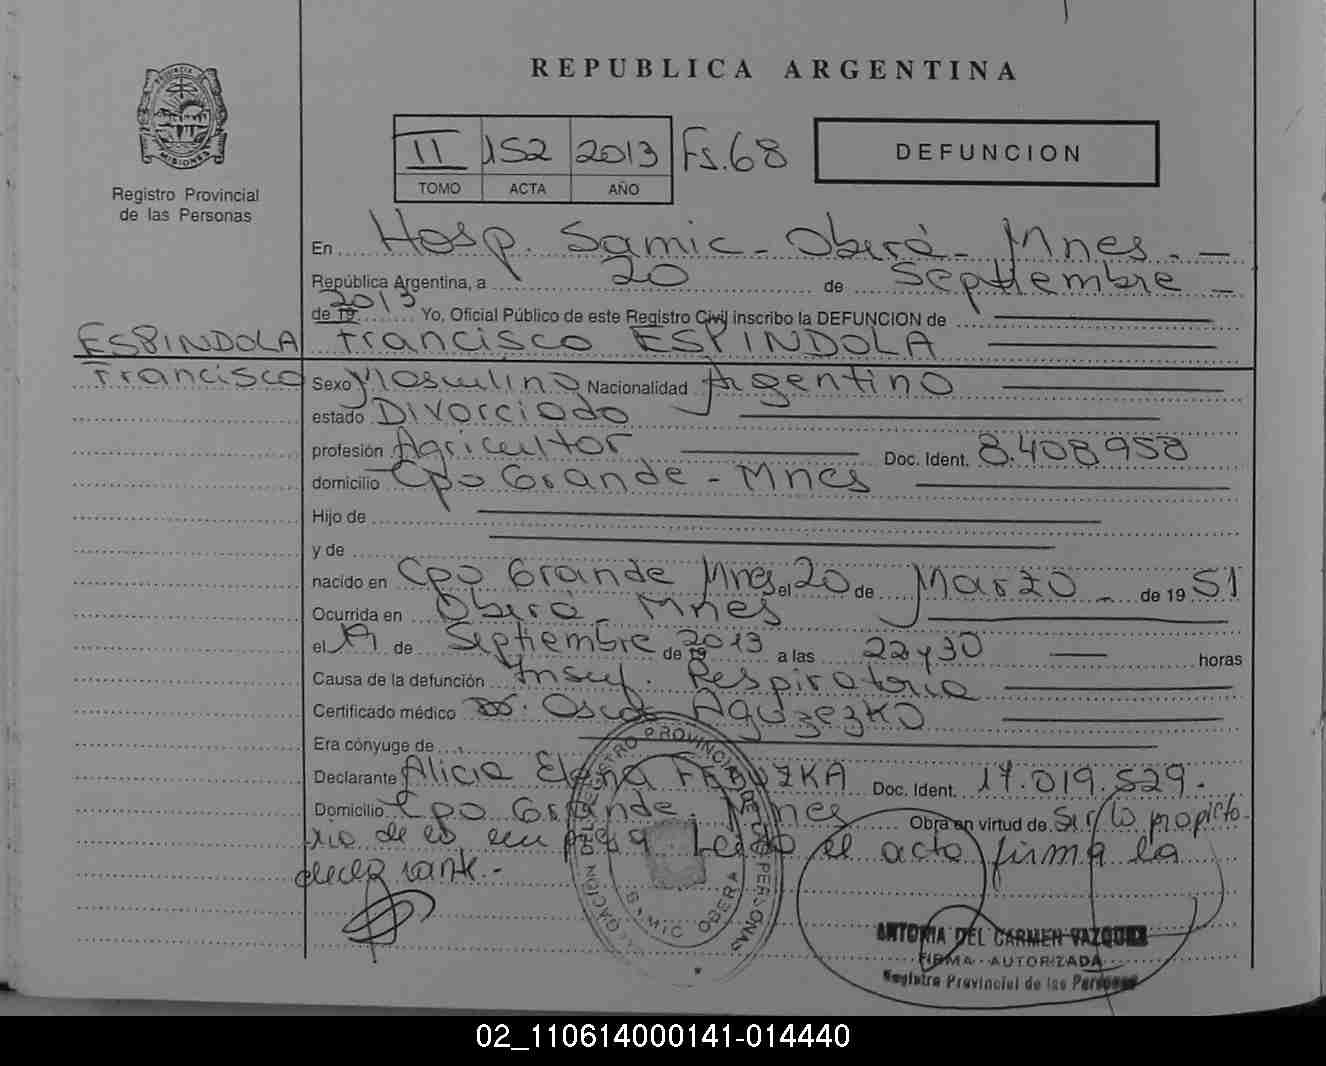 REPUBLICA ARGENTINA
PROVINCIA DE
MISIONES
Registro Provincial
de las Personas
II 152 2013 Fs.68
TOMO ACTA AÑO
DEFUNCION
En Hosp. Samic - Oberá - Mnes. -
República Argentina, a 20 de Septiembre -
de 19 2013 Yo, Oficial Público de este Registro Civil inscribo la DEFUNCION de
ESPINDOLA Francisco ESPINDOLA
Francisco Sexo Masculino Nacionalidad Argentino
estado Divorciado
profesión Agricultor Doc. Ident. 8.408958
domicilio Cpo Grande - Mnes
Hijo de
y de
nacido en Cpo Grande Mnes el 20 de Marzo - de 1951
Ocurrida en Oberá - Mnes
el 19 de Septiembre de 19 2013 a las 22 y 30 horas
Causa de la defunción Insuf. Respiratoria
Certificado médico Dr. Oscar
Era cónyuge de
Declarante Alicia Elena Doc. Ident. 17.019.529.
Domicilio Cpo Grande. Mnes Obra en virtud de ser la propieta-
ria de la empresa Leído el acta firma la
declarante.-
DELEGACION DEL REGISTRO PROVINCIAL DE LAS PERSONAS
SAMIC OBERA
ANTONIA DEL CARMEN VAZQUEZ
FIRMA AUTORIZADA
Registro Provincial de las Personas
02_110614000141-014440